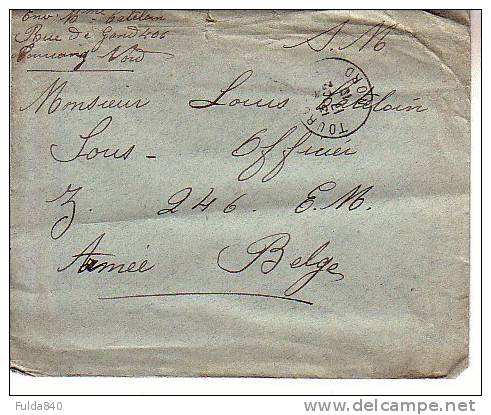 Env. Mme
M - Estelain
Rue de Gand 406
Tourcoing Nord
S. M
Monsieur Louis Estelain
TOURC NORD
Sous - Officier
Z. 246. E. M.
Armée Belge
Fulda840
delcampe.net